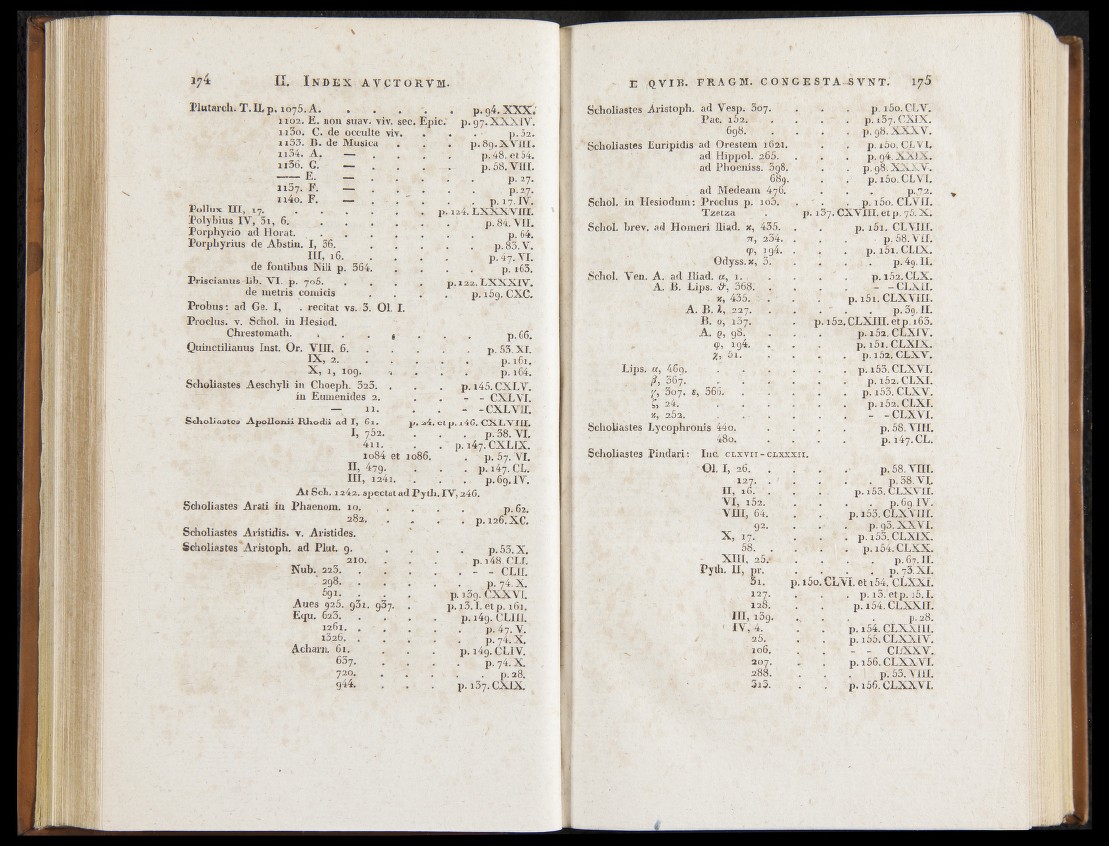 174 II. INDEX AVCTORVM.
Plutarch. T. II. p. 1075. A. . . . . . p. 94. XXX.
1102. E. non suav. viv. sec. Epic. p. 97. XXXIV.
1130. C. de occulte viv. . . . p. 32.
1133. B. de Musica . . . p. 89. XVIII.
1134. A. — . . . . p. 48. et 54.
1136. C. — . . . . p. 58. VIII.
—— E. — . . . . . p. 27.
1137. F. — . . . . . p. 27.
1140. F. — . . . . . p. 17. IV.
Pollux III, 17. . . . . . . p. 124. LXXXVIII.
Polybius IV, 31, 6. . . . . . . p. 84. VII.
Porphyrio ad Horat. . . . . . . p. 64.
Porphyrius de Abstin. I, 36. . . . . . p. 83. V.
III, 16. . . . . . p. 47. VI.
de fontibus Nili p. 364. . . . . p. 163.
Priscianus lib. VI. p. 705. . . . . p. 122. LXXXIV.
de metris comicis . . . . p. 159. CXC.
Probus: ad Ge. I, . recitat vs. 3. Ol. I.
Proclus. v. Schol. in Hesiod.
Chrestomath. . . . . . . . p. 66.
Quinctilianus Inst. Or. VIII. 6. . . . . . p. 53. XI.
IX, 2. . . . . . p. 161.
X, 1, 109. . . . . . p. 164.
Scholiastes Aeschyli in Choeph. 323. . . . . p. 145. CXLV.
in Eumenides 2. . . . - - CXLVI.
— 11. . . . - - CXLVII.
Scholiastes Apollonii Rhodii ad I, 61. p. 24. et p. 146. CXLVIII.
I, 752. . . . p. 38. VI.
411. . . . p. 147. CXLIX.
1084 et 1086. . p. 57. VI.
II, 479. . . . p. 147. CL.
III, 1241. . . . p. 69. IV.
At Sch. 1242. spectat ad Pyth. IV, 246.
Scholiastes Arati in Phaenom. 10. . . . . p. 62.
282. . . . . p. 126. XC.
Scholiastes Aristidis. v. Aristides.
Scholiastes Aristoph. ad Plut. 9. . . . . p. 53. X.
210. . . . . p. 148. CLI.
Nub. 223. . . . . . - - CLII.
298. . . . . . p. 74. X.
591. . . . . p. 139. CXXVI.
Aues 925. 931. 937. . p. 13. I. et p. 161.
Equ. 623. . . . . p. 149. CLIII.
1261. . . . . . p. 47. V.
1326. . . . . . p. 74. X.
Acharn. 61. . . . p. 149. CLIV.
637. . . . . p. 74. X.
720. . . . . . p. 28.
944. . . . p. 137. CXIX.
E QVIB. FRAGM. CONGESTA SVNT. 175
Scholiastes Aristoph. ad Vesp. 307. . . . p. 150. CLV.
Pac. 152. . . . . p. 137. CXIX.
698. . . . . p. 98. XXXV.
Scholiastes Euripidis ad Orestem 1621. . . p. 150. CLVI.
ad Hippol. 265. . . . p. 94. XXIX.
ad Phoeniss. 398. . . . p. 98. XXXV.
689. . . . p. 150. CLVI.
ad Medeam 476. . . . p. 72.
Schol. in Hesiodum: Proclus p. 103. . . . p. 150. CLVII.
Tzetza . p. 137. CXVIII. et p. 75. X.
Schol. brev. ad Homeri Iliad. κ, 435. . . p. 151. CLVIII.
π, 234. . . . p. 58. VII.
φ, 194. . . . p. 151. CLIX.
Odyss. κ, 3. . . . . p. 49. II.
Schol. Ven. A. ad Iliad. α, 1. . . . . p. 152. CLX.
A. B. Lips. θ, 368. . . . . - - CLXII.
κ, 435. . . . p. 151. CLXVIII.
A. B. λ, 227. . . . . . p. 39. II.
B. ο, 137. . p. 152. CLXIII. et p. 163.
A. ρ, 98. . . . p. 152. CLXIV.
φ, 194. . . . p. 151. CLXIX.
χ, 51. . . . . p. 152. CLXV.
Lips. α, 469. . . . . . . p. 153. CLXVI.
β, 367. . . . . . . p. 152. CLXI.
γ, 307. ε, 366. . . . . . p. 153. CLXV.
24. . . . . . . p. 152. CLXI.
κ, 252. . . . . . . - - CLXVI.
Scholiastes Lycophronis 440. . . . . p. 58. VIII.
480. . . . . p. 147. CL.
Scholiastes Pindari: Ind. CLXVII - CLXXXII.
Ol. I, 26. . . . . . p. 58. VIII.
127. . . . . . p. 38. VI.
II, 16. . . . . p. 153. CLXVII.
VI, 152. . . . . p. 69. IV.
VIII, 64. . . . p. 153. CLXVIII.
92. . . . p. 93. XXVI.
X, 17. . . . . p. 153. CLXIX.
58. . . . . p. 154. CLXX.
XIII, 25. . . . . . p. 67. II.
Pyth. II, pr. . . . . . p. 73. XI.
31. p. 150. CLVI. et 154. CLXXI.
127. . . . p. 13. et p. 15. I.
128. . . . p. 154. CLXXII.
III, 139. . . . . p. 28.
IV, 4. . . p. 154. CLXXIII.
25. . . p. 155. CLXXIV.
106. . . - - CLXXV.
207. . . p. 156. CLXXVI.
288. . . . p. 53. VIII.
313. . . p. 156. CLXXVI.